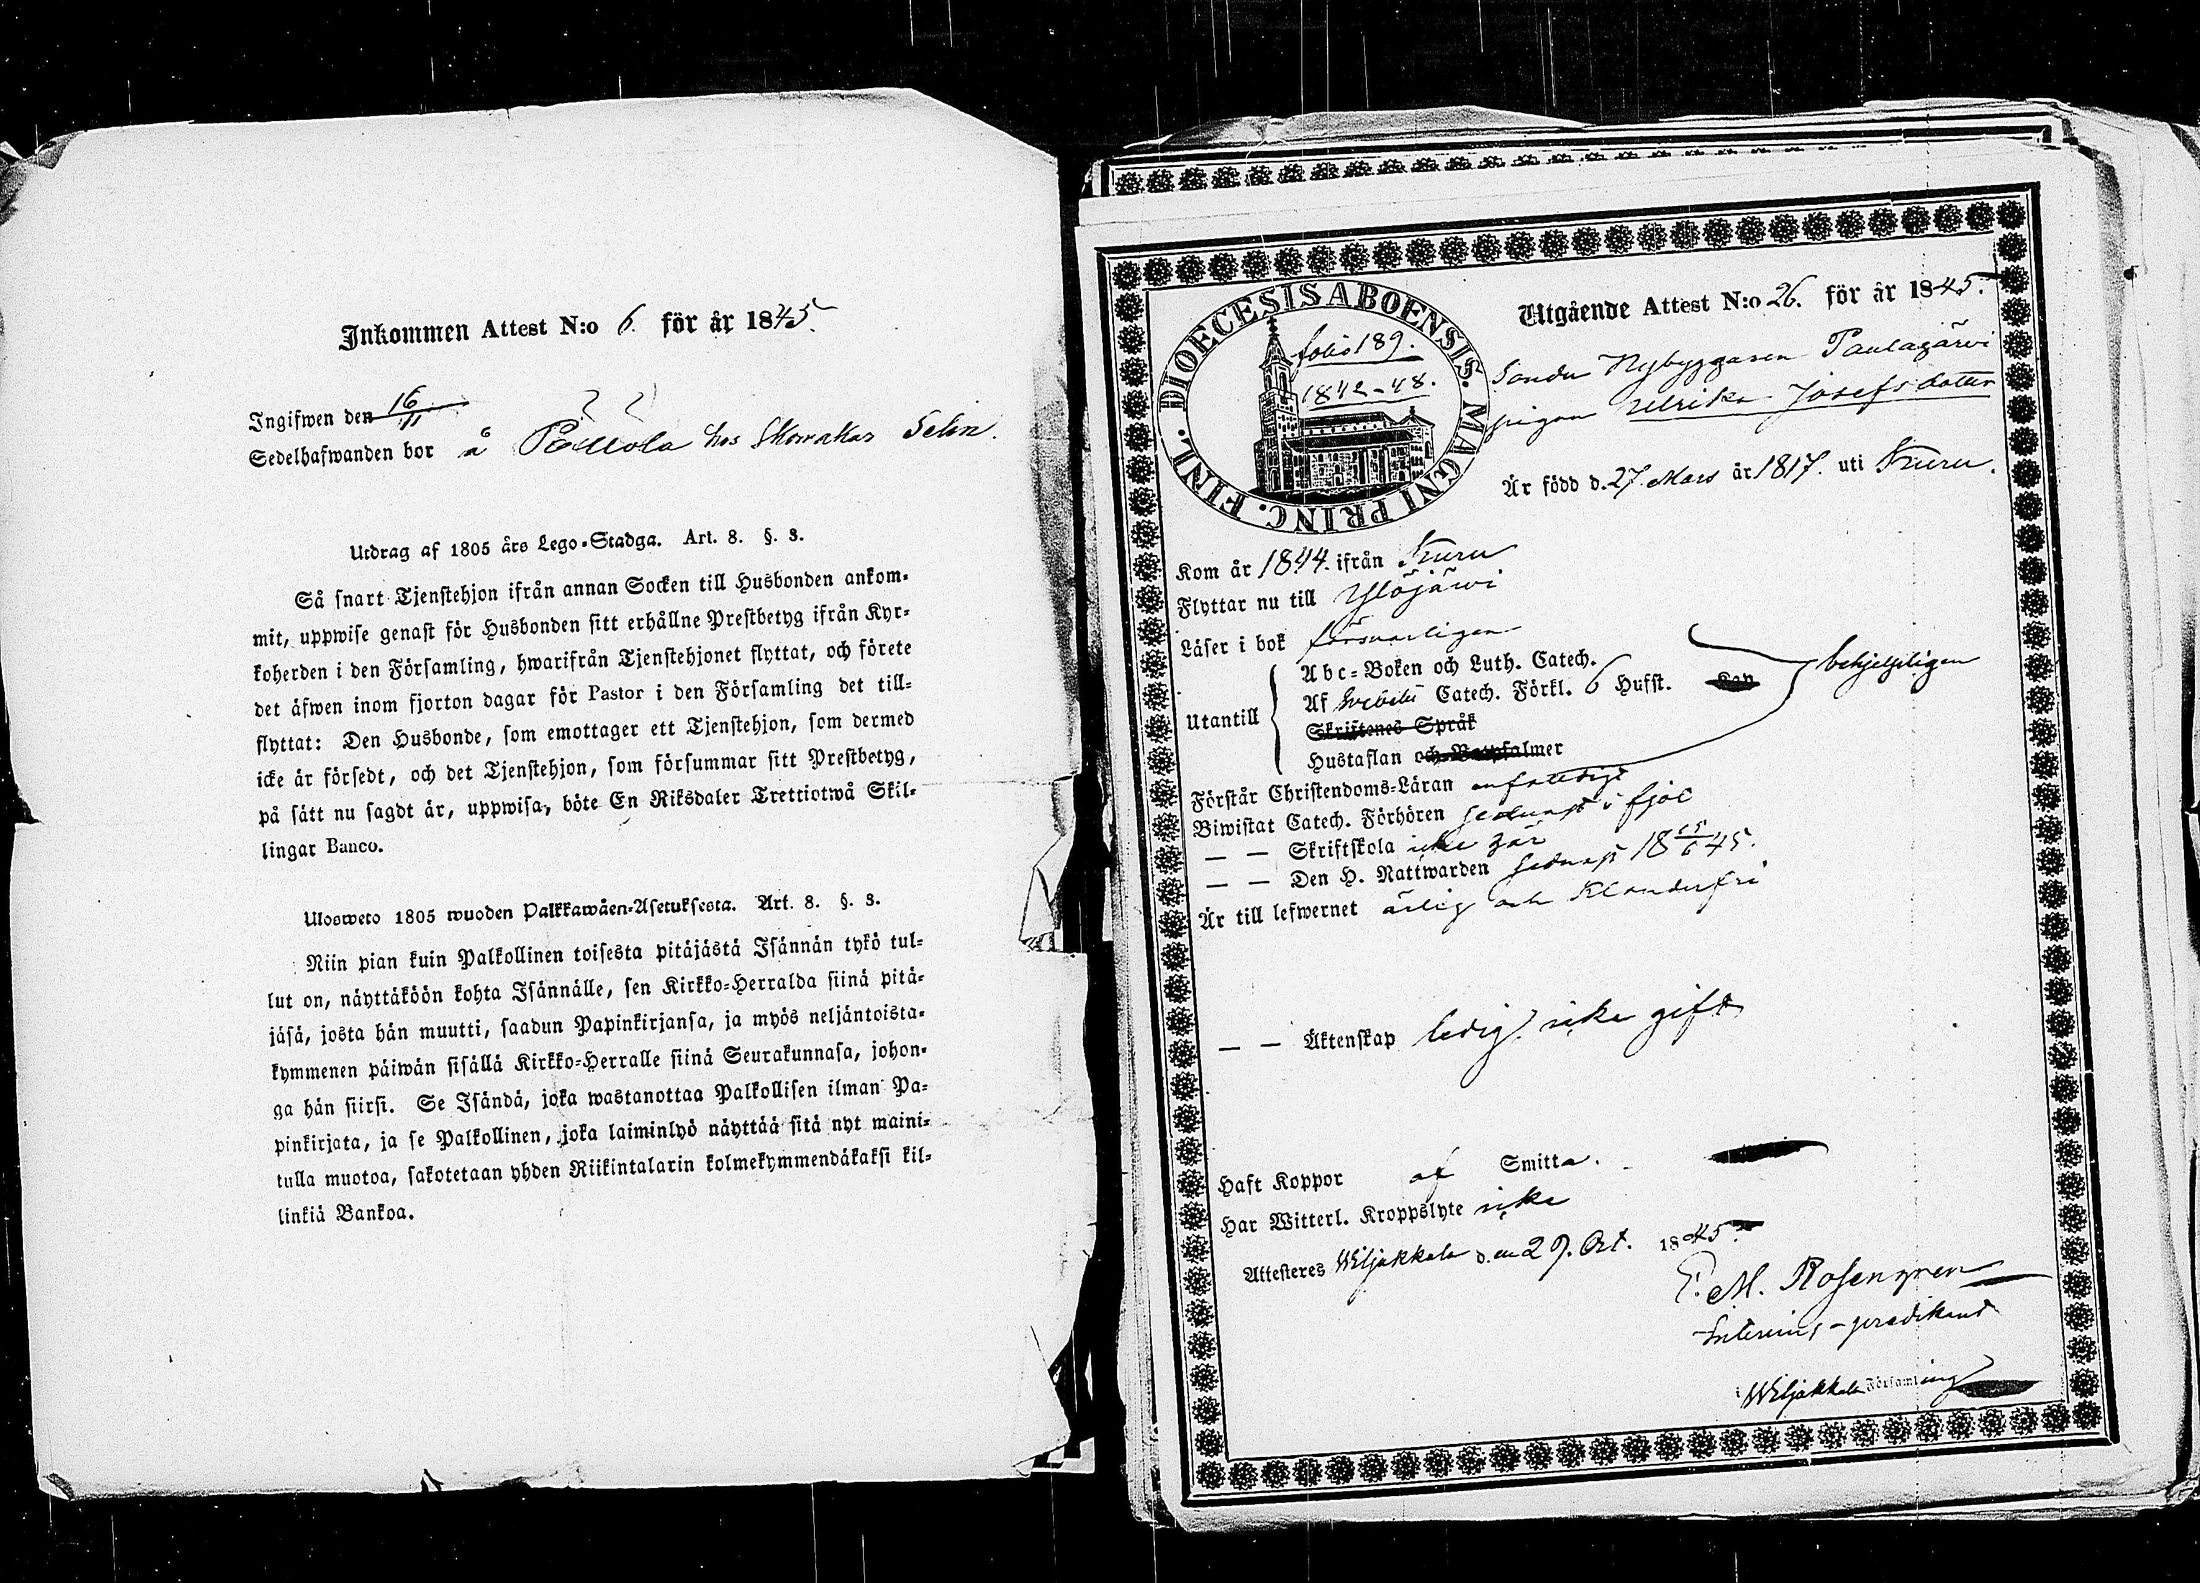 Inkommen Attest N:o 6. för år 1845.
Ingifwen den 16/11
Sedelhafwanden bor å Pättola hos Skomakar Selin.
Utdrag af 1805 års Lego-Stadga. Art. 8. §. 3.
Så snart Tjenstehjon ifrån annan Socken till Husbonden ankom-
mit, uppwise genast för Husbonden sitt erhållne Prestbetyg ifrån Kyr-
koherden i den Församling, hwarifrån Tjenstehjonet flyttat, och förete
det äfwen inom fjorton dagar för Pastor i den Församling det till-
flyttat: Den Husbonde, som emottager ett Tjenstehjon, som dermed
icke är försedt, och det Tjenstehjon, som försummar sitt Prestbetyg,
på sätt nu sagdt är, uppwisa, böte En Riksdaler Trettiotwå Skil-
lingar Banco.
Ulosweto 1805 wuoden Palkkawäen-Asetuksesta. Art. 8. §. 3.
Niin pian kuin Palkollinen toisesta pitäjästä Isännän tykö tul-
lut on, näyttäköön kohta Isännälle, sen Kirkko-Herralda siinä pitä-
jäsä, josta hän muutti, saadun Papinkirjansa, ja myös neljäntoista-
kymmenen päiwän sisällä Kirkko-Herralle siinä Seurakunnasa, johon-
ga hän siirsi. Se Isändä, joka wastanottaa Palkollisen ilman Pa-
pinkirjata, ja se Palkollinen, joka laiminlyö näyttää sitä nyt maini-
tulla muotoa, sakotetaan yhden Riikintalarin kolmekymmendäkaksi kil-
linkiä Bankoa.
DIOECESIS ABOENSIS. MAGNI PRINC. FINL.
folio 189.
1842-48.
Utgående Attest N:o 26. för år 1845.
Sondu Nybyggaren Paulajärwi
pigan Ulrika Josefsdotter
Är född d. 27. Mars år 1817. uti Kuru.
Kom år 1844. ifrån Kuru
Flyttar nu till Ylöjärwi
Läser i bok försvarligen
Utantill
Abc-Boken och Luth. Catech.
Af Svebelii Catech. Förkl. 6 Hufst. Kap
Skriftenes Språk
Hustaflan och Botpsalmer
behjelpligen
Förstår Christendoms-Läran enfaldigt
Biwistat Catech. Förhören sednast i fjol
— — Skriftskola icke här
— — Den H. Nattwarden sednast 18 15/6 45.
Är till lefwernet ärlig och Klanderfri
— — Äktenskap ledig. icke gift
Haft Koppor af Smitta.
Har Witterl. Kroppslyte icke
Attesteres Wiljakkala d. en 29. Oct. 1845.
M. Rosengren
Interims-predikant
i Wiljakkala Församling